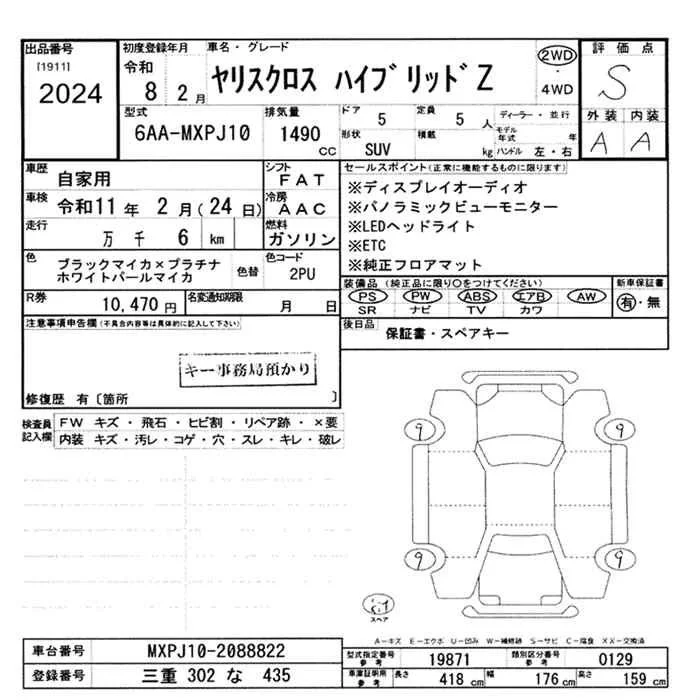 出品番号
[1911]
2024
初度登録年月
令和
8 2 月
車名・グレード
ヤリスクロス ハイブリッドZ
2WD
・
4WD
評価点
S
外装 内装
A A
型式
6AA-MXPJ10
排気量
1490
CC
ドア
5
定員
5 人
形状
SUV
積載
kg
ディーラー・並行
モデル年式 年
ハンドル 左・右
車歴
自家用
シフト
FAT
車検
令和11年 2月(24日)
冷房
AAC
走行
万 千 6 km
燃料
ガソリン
色
ブラックマイカ×プラチナ
ホワイトパールマイカ
色替
色コード
2PU
R券
10,470 円
名変通知期限
月 日
セールスポイント(正常に機能するものに限ります)
※ディスプレイオーディオ
※パノラミックビューモニター
※LEDヘッドライト
※ETC
※純正フロアマット
装備品(純正品に限り○をつけてください)
PS PW ABS エアB AW
SR ナビ TV カワ
新車保証書
有・無
後日品
保証書・スペアキー
注意事項申告欄(不具合内容等は具体的に記入して下さい)
キー事務局預かり
修復歴 有〔箇所 〕
検査員
記入欄
FW キズ・飛石・ヒビ割・リペア跡・×要
内装 キズ・汚レ・コゲ・穴・スレ・キレ・破レ
9 9
9 9
スペア
A－キズ E－エクボ U－凹み W－補修跡 S－サビ C－腐食 XX－交換済
車台番号
MXPJ10-2088822
登録番号
三重 302 な 435
型式指定番号
参考
19871
類別区分番号
参考
0129
車庫証明用
参考
長さ 418 cm
幅 176 cm
高さ 159 cm